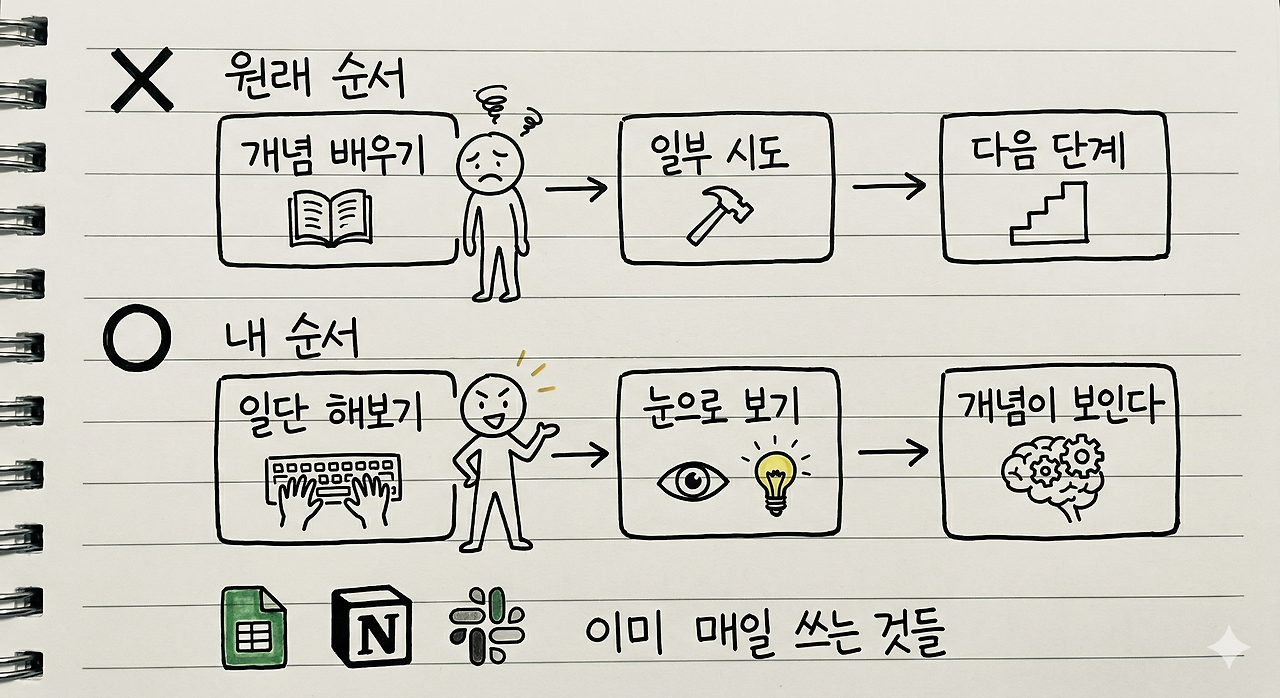 원래 순서
개념 배우기
일부 시도
다음 단계
내 순서
일단 해보기
눈으로 보기
개념이 보인다
N
이미 매일 쓰는 것들